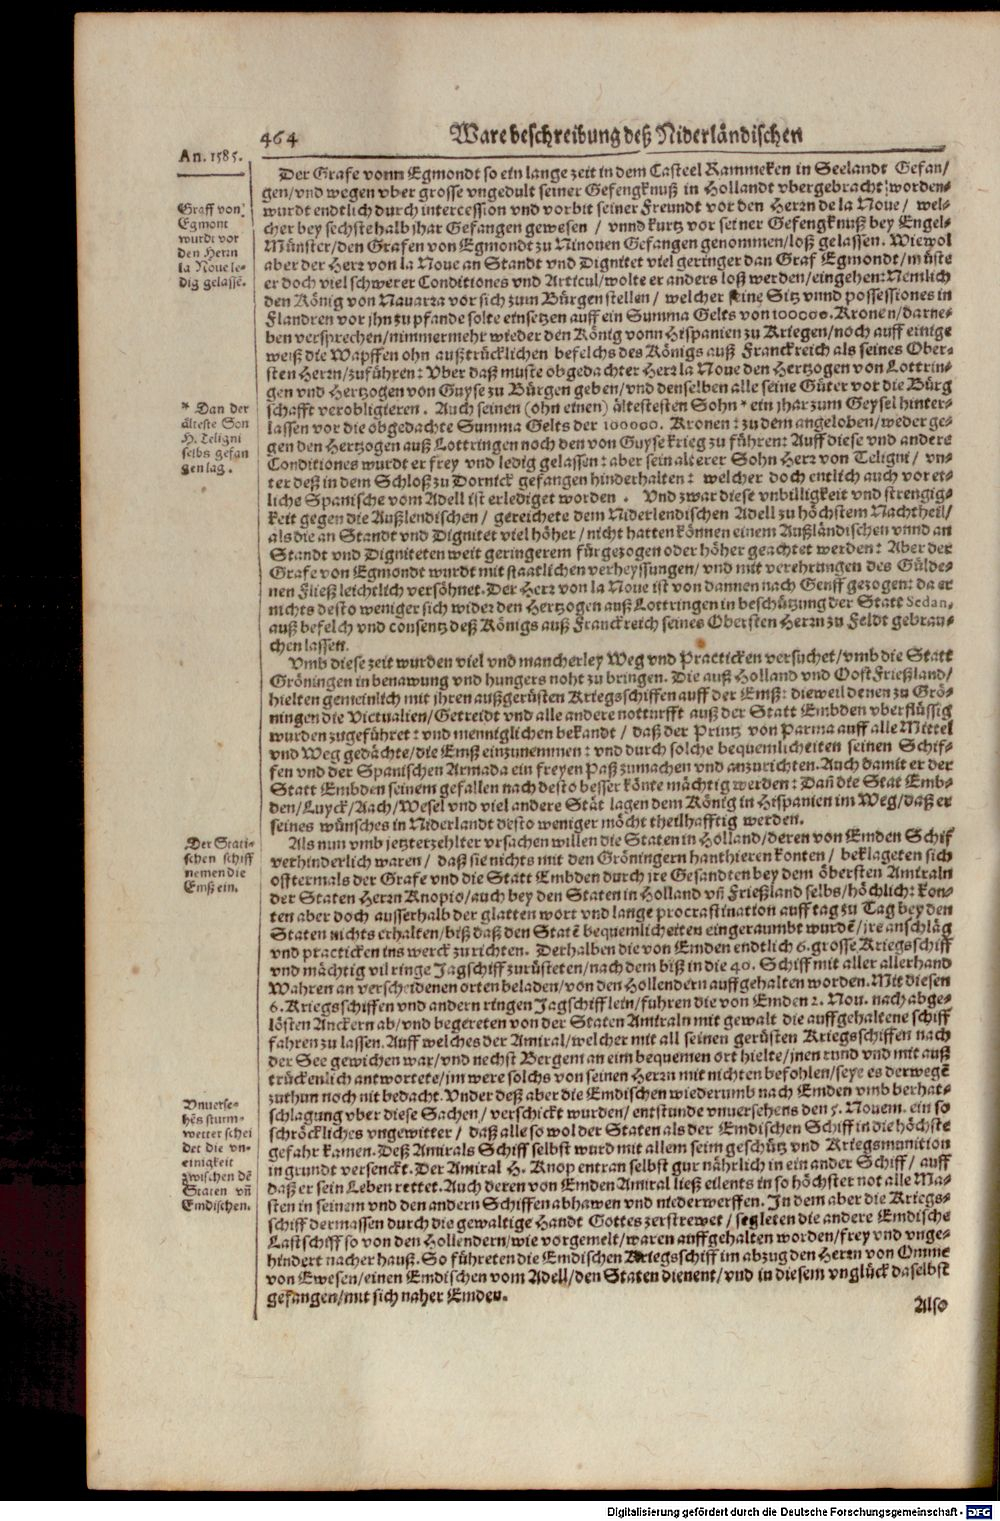 464 Ware beschreibung deß Niderländischen
An. 1585.
Der Grafe vonn Egmondt so ein lange zeit in dem Casteel Rammeken in Seelandt Gefan/
gen/vnd wegen vber grosse vngedult seiner Gefengknuß in Hollandt vbergebracht worden-
wurdt endtlich durch intercession vnd vorbit seiner Freundt vor den Herrn de la Noue / wel-
cher bey sechstehalb jhar Gefangen gewesen / vnnd kurtz vor seiner Gefengknuß bey Engel-
Münster/den Grafen von Egmondt zu Ninouen Gefangen genommen/loß gelassen. Wiewol
aber der Herr von la Noue an Standt vnd Dignitet viel geringer dan Graf Egmondt/müste
er doch viel schwerer Conditiones vnd Articul/wolte er anders loß werden/eingehen: Nemlich
den König von Nauarra vor sich zum Bürgen stellen / welcher seine Sitz vnnd possessiones in
Flandren vor jhn zu pfande solte einsetzen auff ein Summa Gelts von 100000. Kronen/darne-
ben versprechen/nimmermehr wieder den König vonn Hispanien zu Kriegen/noch auff einige
weiß die Wapffen ohn außtrücklichen befelchs des Königs auß Franckreich als seines Ober-
sten Herrn/zuführen: Vber daß muste obgedachter Herr la Noue den Hertzogen von Lottrin-
gen vnd Hertzogen von Guyse zu Bürgen geben/vnd denselben alle seine Güter vor die Bürg
schafft verobligieren. Auch seinen (ohn einen) ältestesten Sohn * ein jhar zum Geysel hinter-
lassen vor die obgedachte Summa Gelts der 100000. Kronen: zu dem angeloben/weder ge-
gen den Hertzogen auß Lottringen noch den von Guyse krieg zu führen: Auff diese vnd andere
Conditiones wurdt er frey vnd ledig gelassen: aber sein alterer Sohn Herr von Teligni / vn-
ter deß in dem Schloß zu Dornick gefangen hinderhalten: welcher doch entlich auch vor et-
liche Spanische vom Adell ist erlediget worden. Vnd zwar diese vnbilligkeit vnd strengig-
keit gegen die Außlendischen / gereichete dem Niderlendischen Adell zu höchstem Nachtheil/
als die an Standt vnd Dignitet viel höher / nicht hatten können einem Außländischen vnnd an
Standt vnd Digniteten weit geringerem fürgezogen oder höher geachtet werden: Aber der
Grafe von Egmondt wurdt mit staatlichen verheyssungen/ vnd mit verehrungen des Gülde-
nen Fließ leichtlich versöhnet. Der Herr von la Noue ist von dannen nach Genff gezogen: da er
nichts desto weniger sich wider den Hertzogen auß Lottringen in beschützung der Statt Sedan,
auß befelch vnd consentz deß Königs auß Franckreich seines Obersten Herrn zu Feldt gebrau-
chen lassen.
Graff von
Egmont
wurdt vor
den Herrn
la Noue le-
dig gelassẽ.
* Dan der
älteste Son
H. Teligni
selbs gefan
gen lag.
Vmb diese zeit wurden viel vnd mancherley Weg vnd Practicken versuchet/vmb die Statt
Gröningen in benawung vnd hungers noht zu bringen. Die auß Holland vnd Oost Frießland/
hielten gemeinlich mit jhren außgerüsten Kriegsschiffen auff der Emß: dieweil denen zu Grö-
ningen die Victualien/Getreidt vnd alle andere notturfft auß der Statt Embden vberflüssig
wurden zugeführet: vnd menniglichen bekandt / daß der Printz von Parma auff alle Mittel
vnd Weg gedächte/die Emß einzunemmen: vnd durch solche bequemlicheiten seinen Schif-
fen vnd der Spanischen Armada ein freyen Paß zumachen vnd anzurichten. Auch damit er der
Statt Embden seinem gefallen nach desto besser könte mächtig werden: Dañ die Stat Emb-
den/Luyck/Aach/Wesel vnd viel andere Stät lagen dem König in Hispanien im Weg/daß er
seines wünsches in Niderlandt desto weniger möcht theilhafftig werden.
Als nun vmb jetzterzehlter vrsachen willen die Staten in Holland/deren von Emden Schif
verhinderlich waren / daß sie nichts mit den Gröningern hanthieren konten / beklageten sich
offtermals der Grafe vnd die Statt Embden durch jre Gesandten bey dem öbersten Amiraln
der Staten Herrn Knopio/auch bey den Staten in Holland vñ Frießland selbs/höchlich: kon-
ten aber doch ausserhalb der glatten wort vnd lange procrastination auff tag zu Tag bey den
Staten nichts erhalten/biß daß den Statẽ bequemlicheiten eingeraumbt wurdẽ/jre anschläg
vnd practicken ins werck zurichten. Derhalben die von Emden endtlich 6. grosse Kriegsschiff
vnd mächtig vil ringe Jagschiff zurüsteten/nach dem biß in die 40. Schiff mit aller allerhand
Wahren an verscheidenen orten beladen/von den Hollendern auffgehalten worden. Mit diesen
6. Kriegsschiffen vnd andern ringen Jagschifflein/fuhren die von Emden 2. Nou. nach abge-
lösten Anckern ab/vnd begereten von der Staten Amiraln mit gewalt die auffgehaltene schiff
fahren zu lassen. Auff welches der Amiral/welcher mit all seinen gerüsten Kriegsschiffen nach
der See gewichen war/vnd nechst Bergem an eim bequemen ort hielte/jnen rund vnd mit auß
trückenlich antwortete/jm were solchs von seinen Herrn mit nichten befohlen/seye es derwegẽ
zuthun noch nit bedacht. Vnder deß aber die Emdischen wiederumb nach Emden vmb berhat-
schlagung vber diese Sachen/ verschickt wurden/ entstunde vnuersehens den 5. Nouem. ein so
schröckliches vngewitter / daß alle so wol der Staten als der Emdischen Schiff in die höchste
gefahr kamen. Deß Amirals Schiff selbst wurd mit allem seim geschütz vnd Kriegsmunition
in grundt versenckt. Der Amiral H. Knop entran selbst gur nährlich in ein ander Schiff / auff
daß er sein Leben rettet. Auch deren von Emden Amiral ließ eilents in so höchster not alle Ma-
sten in seinem vnd den andern Schiffen abhawen vnd niederwerffen. In dem aber die Kriegs-
schiff dermassen durch die gewaltige Handt Gottes zerstrewet / segleten die andere Emdische
Lastschiff so von den Hollendern/wie vorgemelt/waren auffgehalten worden/frey vnd vnge-
hindert nacher hauß. So führeten die Emdischen Kriegsschiff im abzug den Herrn von Omme
von Ewesen/einen Emdischen vom Adell/den Staten dienent/vnd in diesem vnglück daselbst
gefangen/mit sich naher Emden.
Der Stati-
schen schiff
nemen die
Emß ein.
Vnuerse-
hẽs sturm-
wetter schei
det die vn-
einigkeit
zwischen dẽ
Staten vñ
Emdischen.
Also
Digitalisierung gefördert durch die Deutsche Forschungsgemeinschaft - DFG